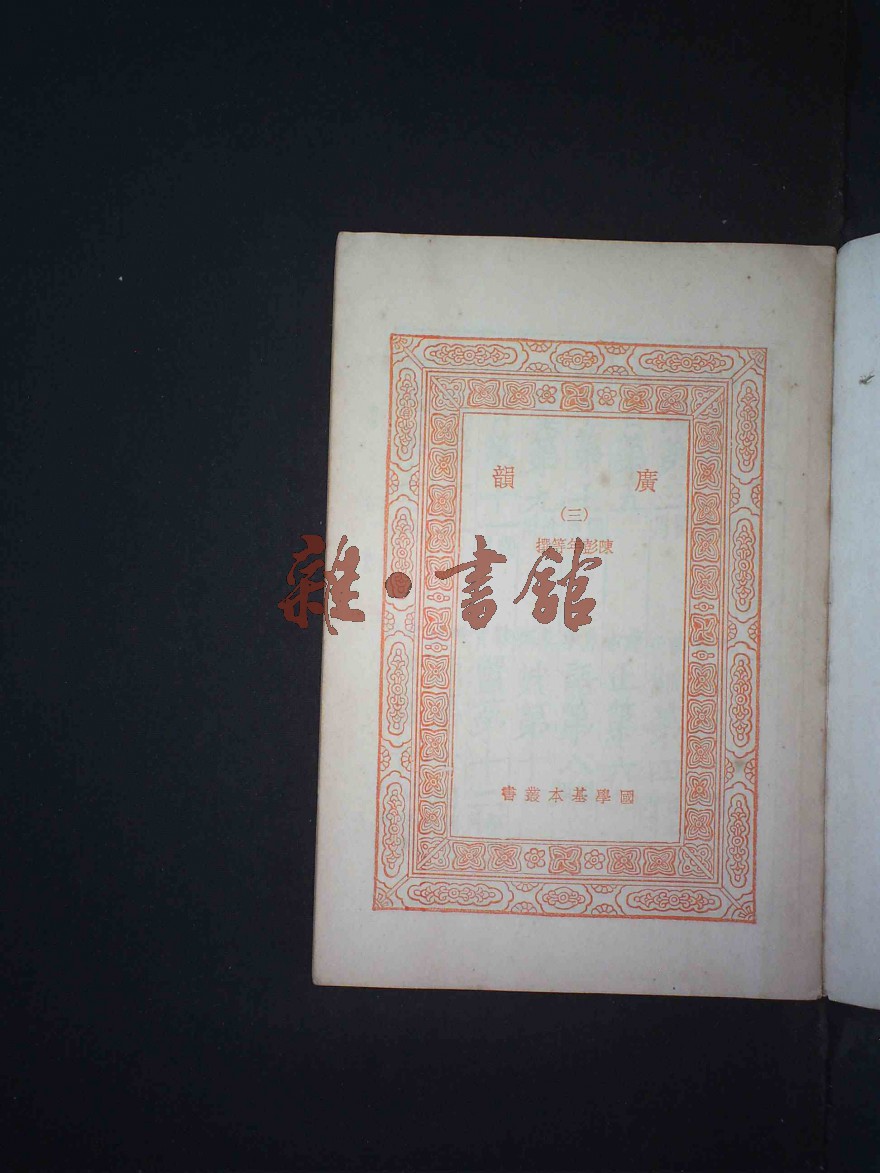 廣韻
(三)
陳彭年等撰
雜·書館
國學基本叢書